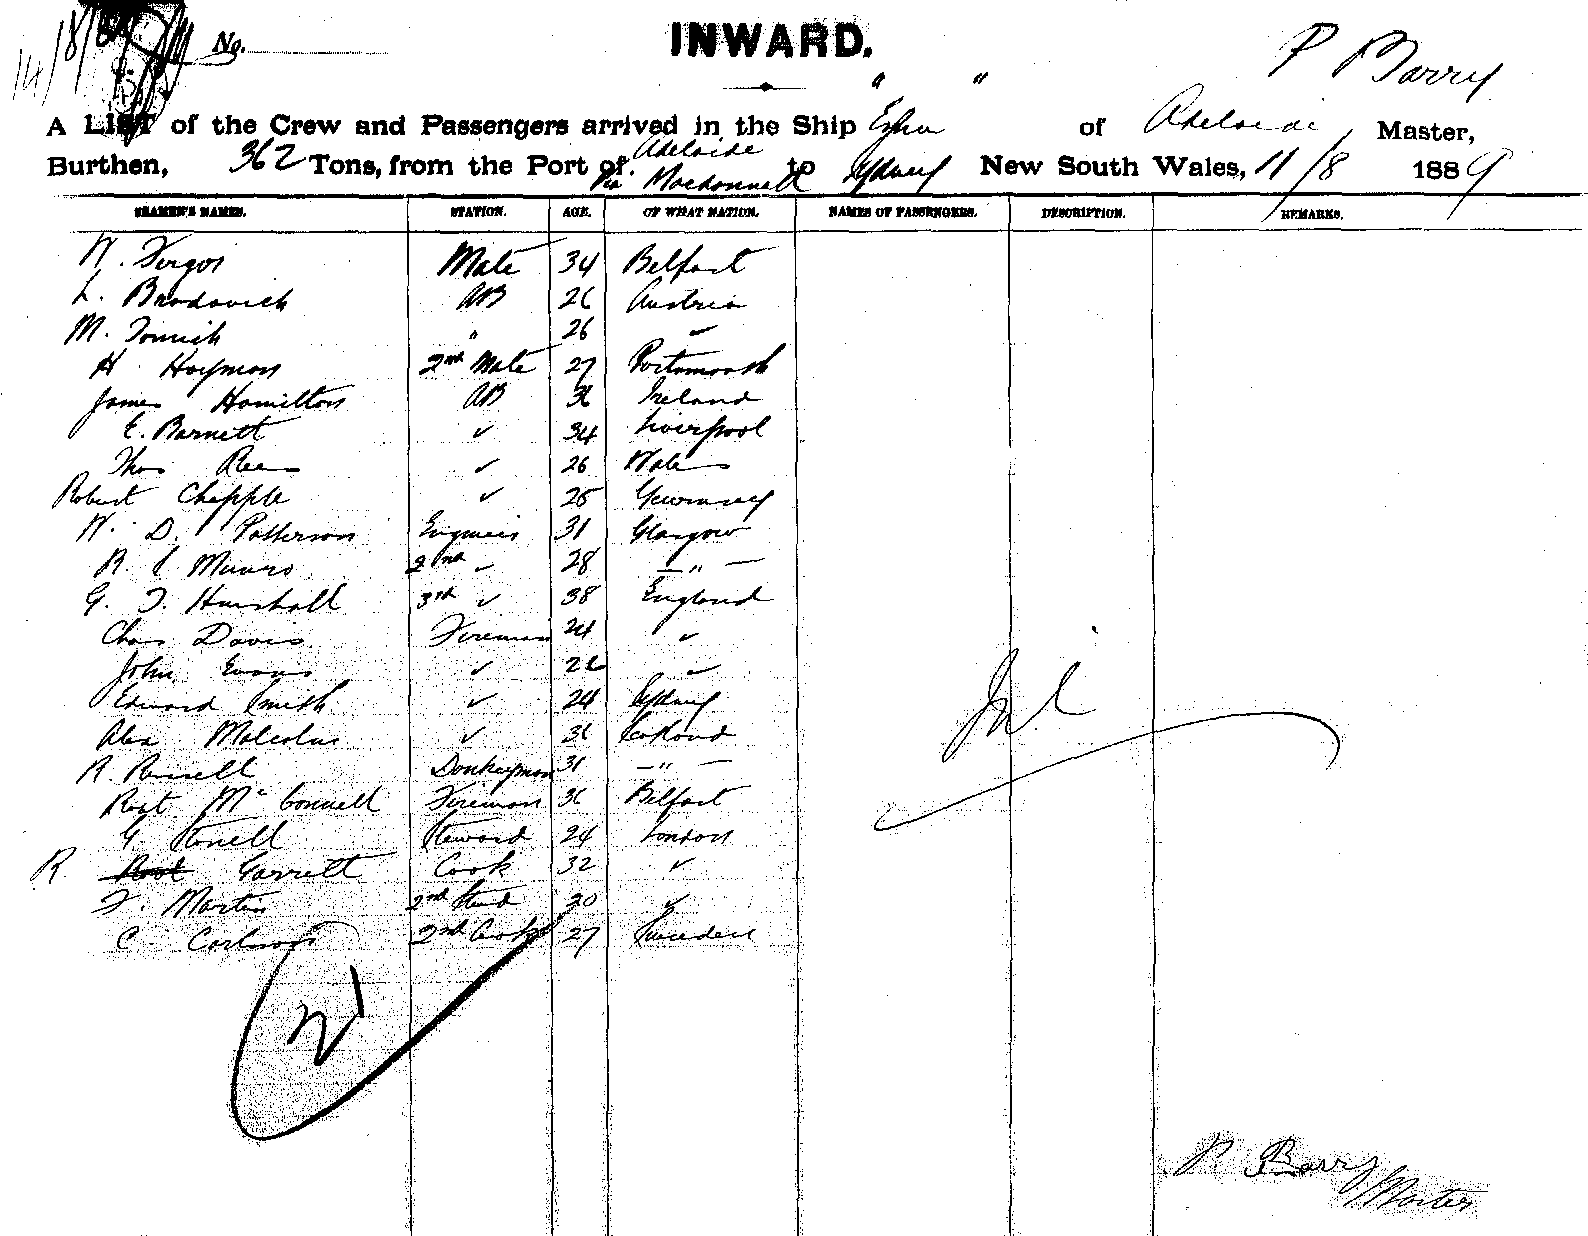 14/8/89 No.
INWARD.
P Barry
" "
A LIST of the Crew and Passengers arrived in the Ship of Adelaide, Master,
Burthen, 362 Tons, from the Port of Adelaide via Macdonnell to Sydney New South Wales, 11/8 1889
SEAMEN'S NAMES. STATION. AGE. OF WHAT NATION. NAMES OF PASSENGERS. DESCRIPTION. REMARKS.
W. Mate 34 Belfast
L. Brodovich AB 26 Austria
M. " 26 "
H Hayman 2nd Mate 27 Portsmouth
James Hamilton AB 36 Ireland
E. Barnett " 34 Liverpool
Thos Rees " 26 Wales
Robert Chapple " 25 Guernsey
W. D. Patterson Engineer 31 Glasgow
R. Munro 2nd " 28 — " —
G. T. 3rd " 38 England
Chas Davis Fireman 24 "
John Evans " 22 "
Edward Smith " 24 Sydney
Alex Malcolm " 36 Scotland
R. Russell Donkeyman 31 — " —
Robt McConnell Fireman 36 Belfast
G Steward 24 London
R. Garrett Cook 32 "
F. Martin 2nd Stwd 30 "
C Carlson 2nd Cook 27 Sweden
Nil
P Barry
Master